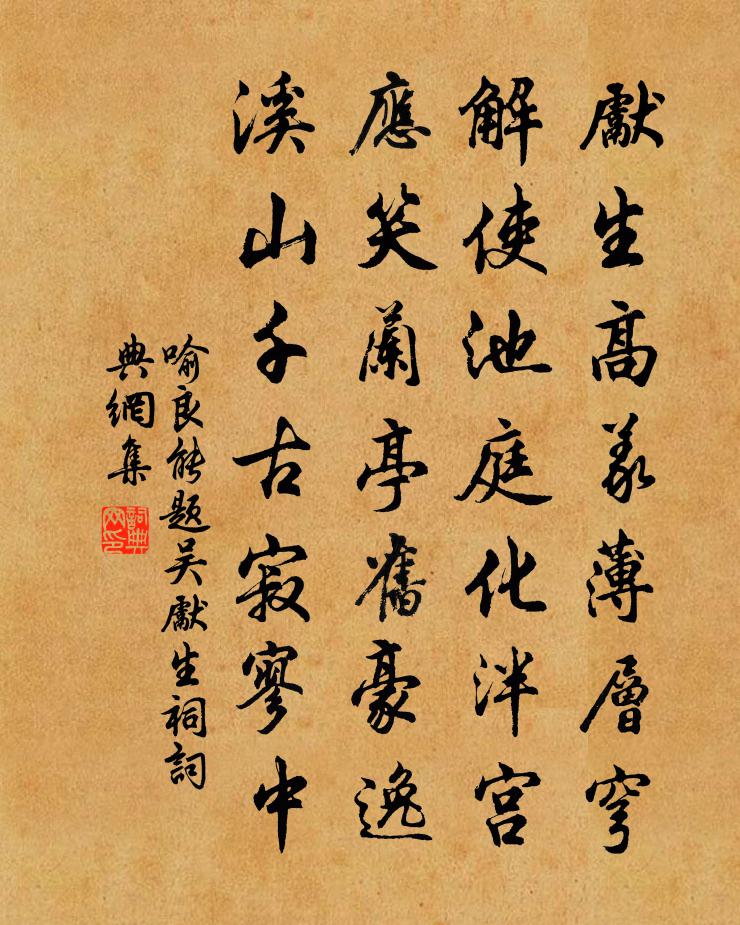 獻生高義薄層穹
解使池庭化泮宫
應笑蘭亭舊豪逸
溪山千古寂寥中
喻良能题吴獻生祠詞
典網集
詞典網印